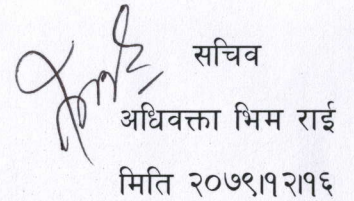 सचिव
अधिवक्ता भिम राई
मिति २०७९।१२।१६